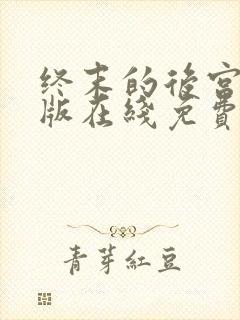 终末的后宫
版在綫免費
青芽紅豆